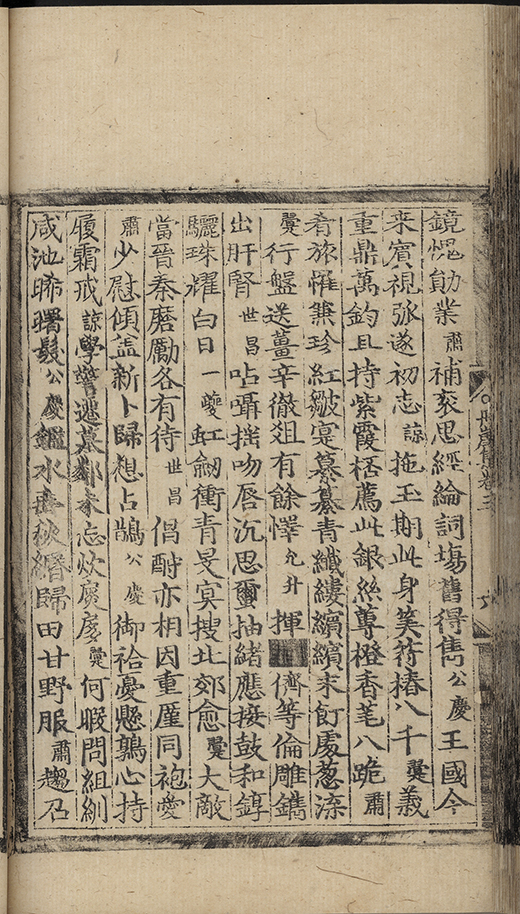 鏡愧勛業肅補衮思經綸詞場舊得雋公慶王國今
来賓視弧遂初志諒拖玉期此身筭符椿八千龑義
重鼎萬鈞且持紫霞栝薦此銀絲蓴橙香荖八跪肅
肴旅罹兼珍紅皺寔纂纂青纖縷繽繽末飣處葱渿
龑行盤送薑辛徹爼有餘懌允升揮儕等倫雕鐫
出肝腎世昌呫囁揺吻唇沉思璽抽緒應接鼓和錞
驪珠燿白日一夔虹劒衝青旻㝠搜北郊愈龑大敵
當晉秦磨勵各有待世昌倡酧亦相因重厓同袍愛
肅少慰傾盖新卜歸想占鵲公慶御袷憂懸鶉心持
履霜戒諒學警遷墓鄰未忘炊扊扅龑何暇問組紃
咸池晞曙髮公慶鑑水垂秋緡歸田甘野服肅趨召